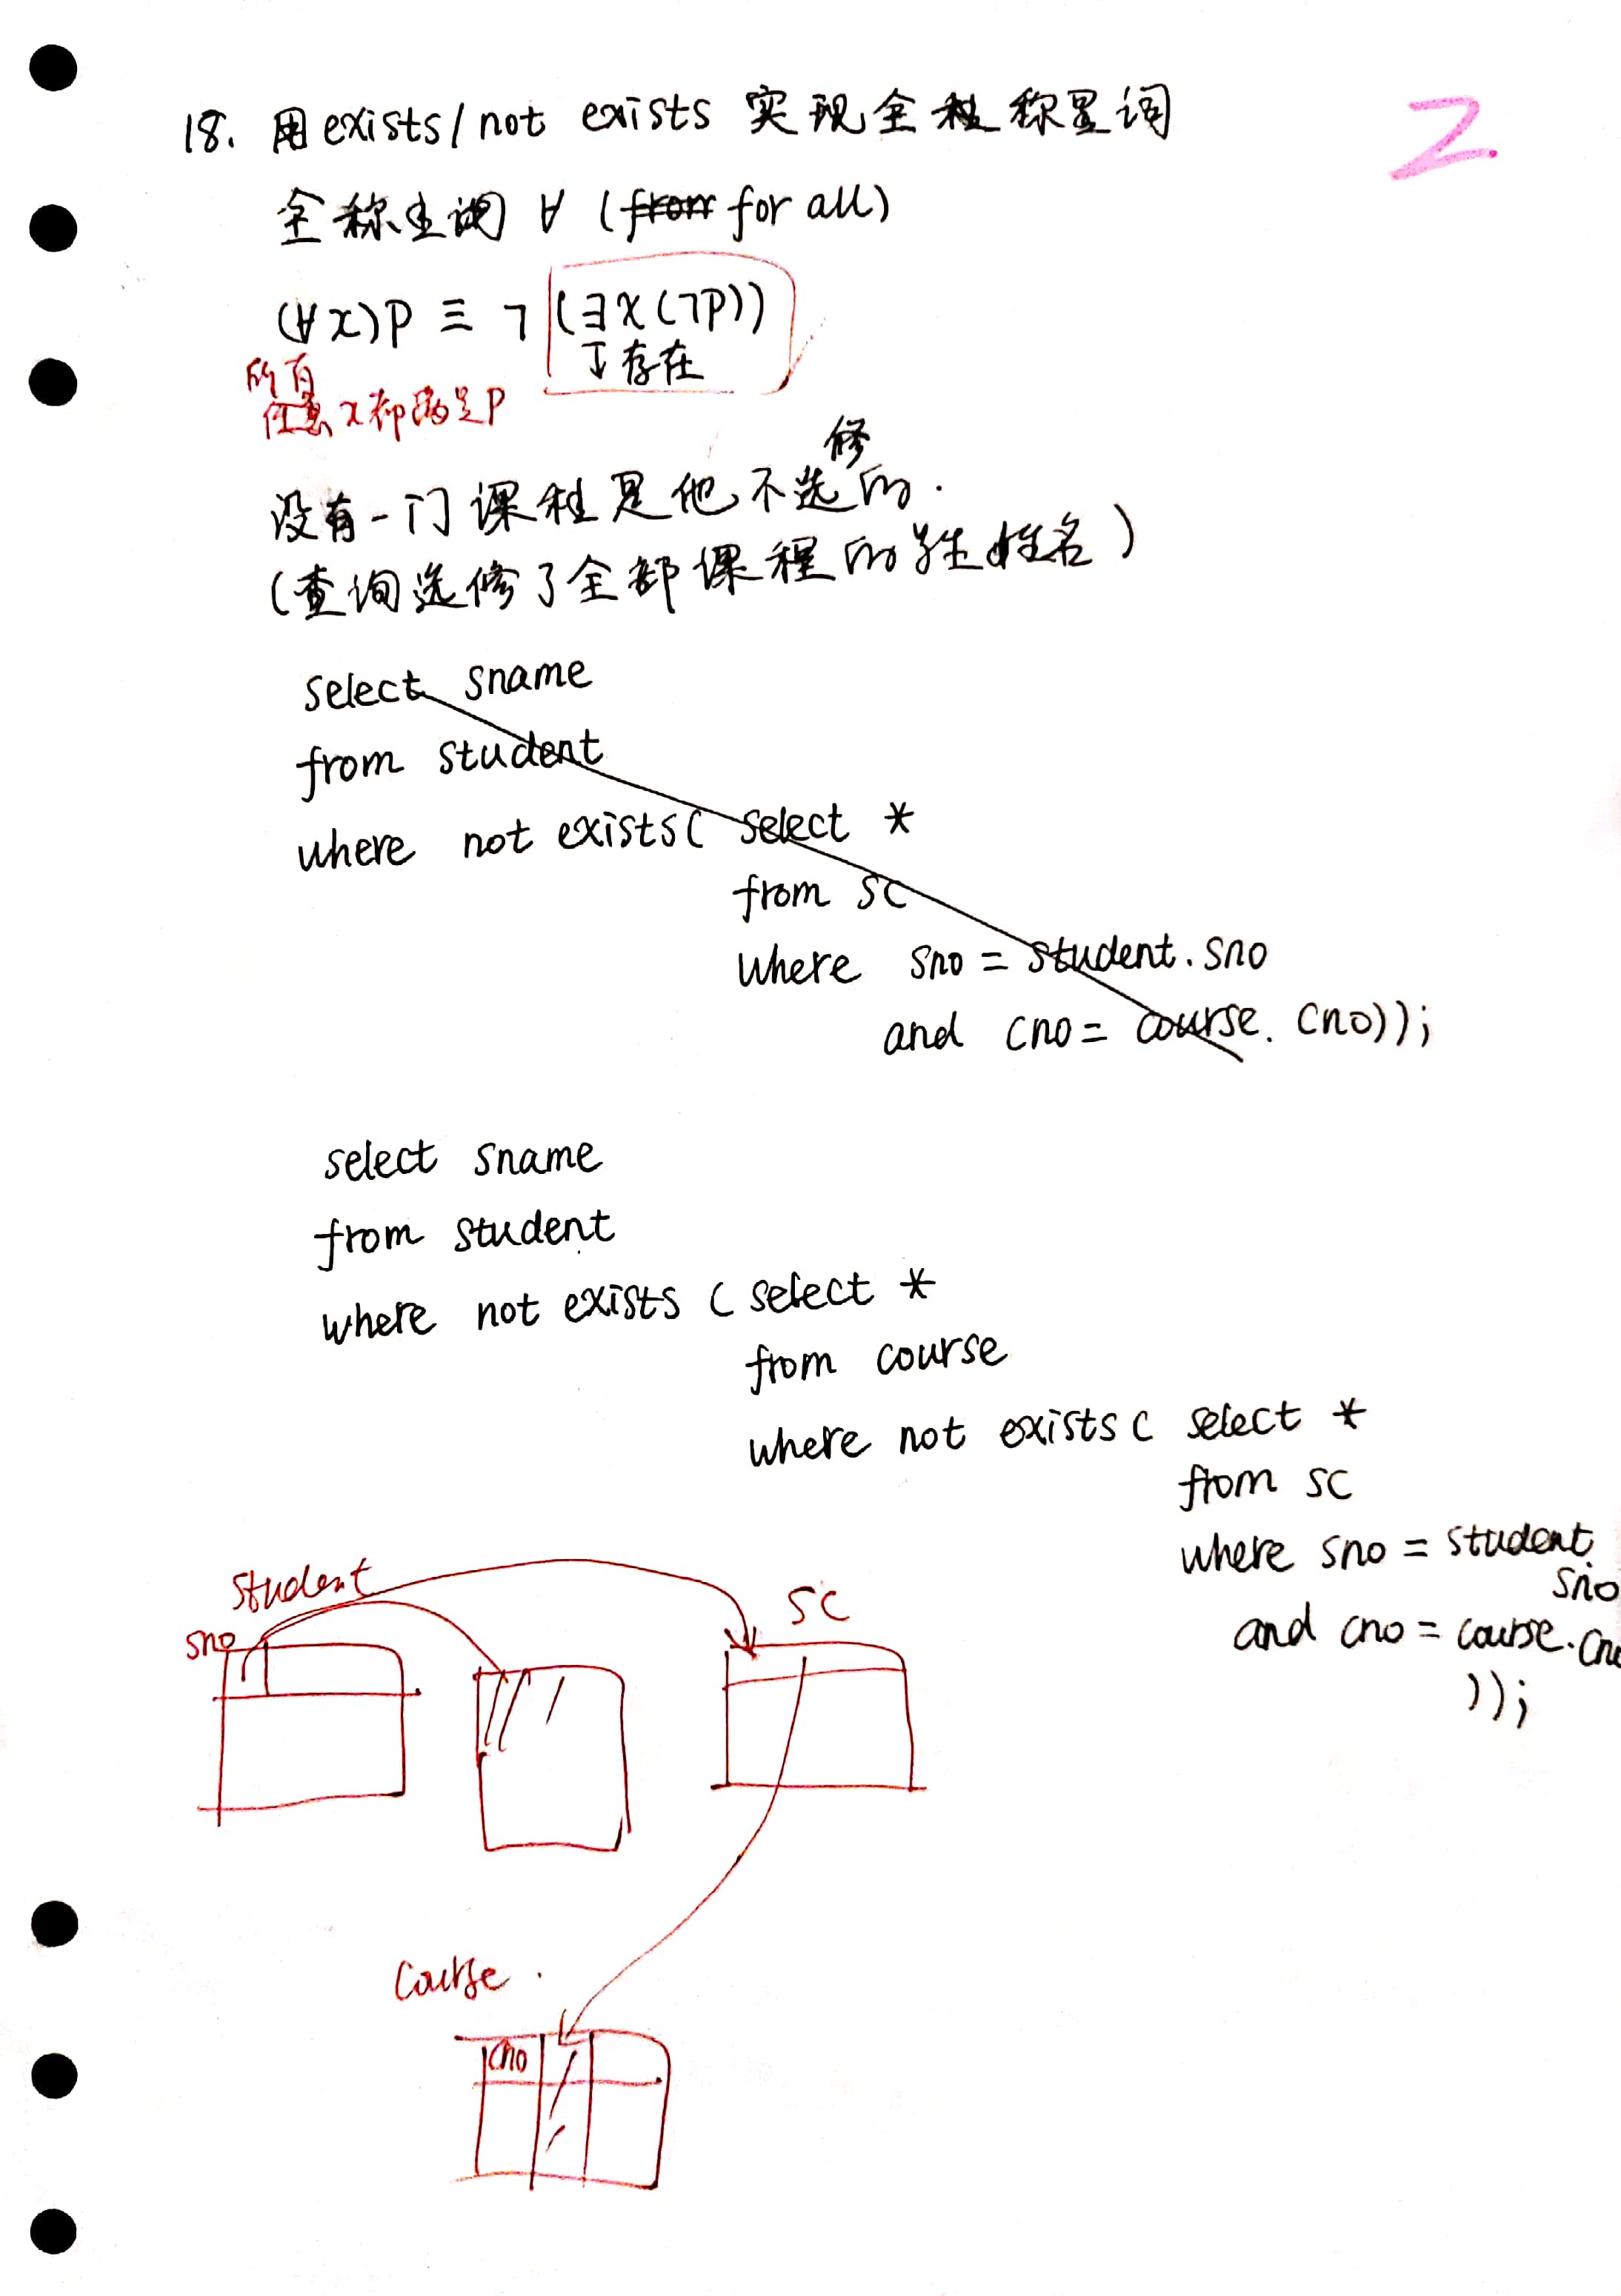 18. 用 exists/not exists 实现全称量词
2
全称量词 ∀ (for all)
(∀x)P ≡ ¬(∃x(¬P))
↓存在
所有
任意 x都满足P
没有一门课程是他不选修的.
(查询选修了全部课程的学生姓名)
select sname
from student
where not exists( select *
from sc
where sno = student.sno
and cno = course.cno));
select sname
from student
where not exists ( select *
from course
where not exists ( select *
from sc
where sno = student.
sno
and cno = course.cno
));
student
sno
SC
Course.
cno